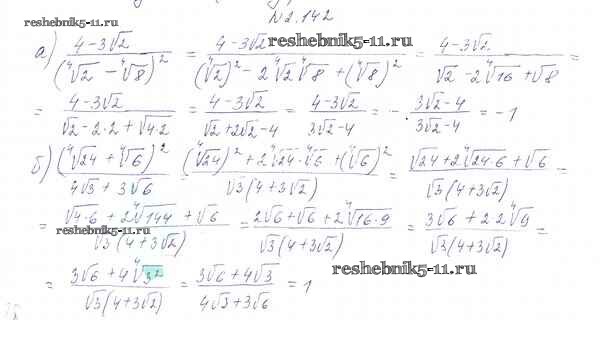 N2.142
reshebnik5-11.ru
reshebnik5-11.ru
а) (4-3√2)/(∜2 - ∜8)² = (4-3√2)/((∜2)² - 2∜2∜8 + (∜8)²) = (4-3√2)/(√2 - 2∜16 + √8) =
= (4-3√2)/(√2 - 2·2 + √(4·2)) = (4-3√2)/(√2 + 2√2 - 4) = (4-3√2)/(3√2 - 4) = - (3√2-4)/(3√2-4) = -1
б) (∜24 + ∜6)²/(4√3 + 3√6) = ((∜24)² + 2∜24·∜6 + (∜6)²)/(√3(4+3√2)) = (√24 + 2∜(24·6) + √6)/(√3(4+3√2)) =
= (√(4·6) + 2∜144 + √6)/(√3(4+3√2)) = (2√6 + √6 + 2∜(16·9))/(√3(4+3√2)) = (3√6 + 2·2∜9)/(√3(4+3√2)) =
reshebnik5-11.ru
= (3√6 + 4∜3²)/(√3(4+3√2)) = (3√6 + 4√3)/(4√3 + 3√6) = 1
reshebnik5-11.ru